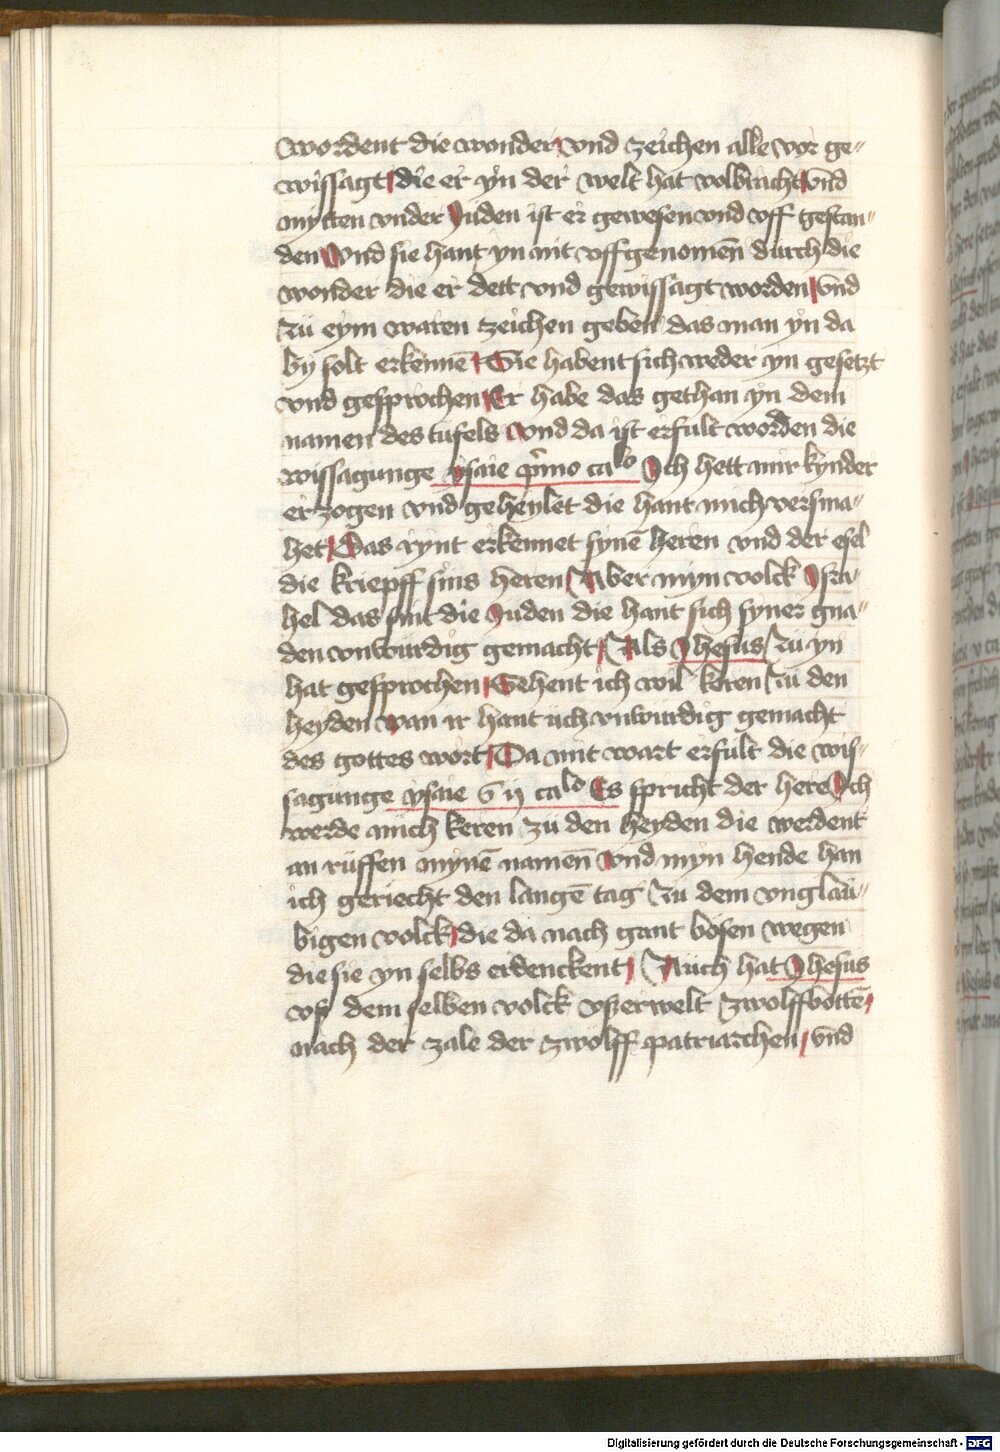 wordent die wonder vnd zeichen alle vor ge-
wissagt die er yn der welt hat volbracht vnd
mytten vnder Juden ist er gewesen vnd vff gestan-
den Vnd sie hant yn nit vffgenomen̄ durch die
wonder die er dett vnd gewissagt worden vnd
zů eym waren zeichen geben das man yn da
by solt erkennē Sie habent sich weder yn gesetzt
vnd gesprochen Er habe das gethan yn dem
namen des tufels Vnd da ist erfult worden die
wissagunge ysaie pͥmo calo Ich hett mir kynder
erzogen vnd geheylet die hant mich versma-
het Das rynt erkennet synē heren vnd der esel
die kriepff sins heren Aber myn volck Isra-
hel das sint die Juden die hant sich syner gna-
den vnwurdig gemacht Als Jhesus zů yn
hat gesprochen Sehent ich wil keren zů den
heyden wan ir hant uch vnwurdig gemacht
des gottes wort Da mit wart erfult die wis-
sagunge ysaie 6ij calo Es spricht der here Ich
werde mich keren zů den heyden die werdent
an růffen mynē namen̄ Vnd myn hende han
ich geriecht den langē tag zu dem vnglau-
bigen volck die da nach gant bösen wegen
die sie yn selbs erdenckent Auch hat Jhesus
vß dem selben volck vßerwelt zwolffbottē
nach der zale der zwolff patriarchen vnd
Digitalisierung gefördert durch die Deutsche Forschungsgemeinschaft - DFG